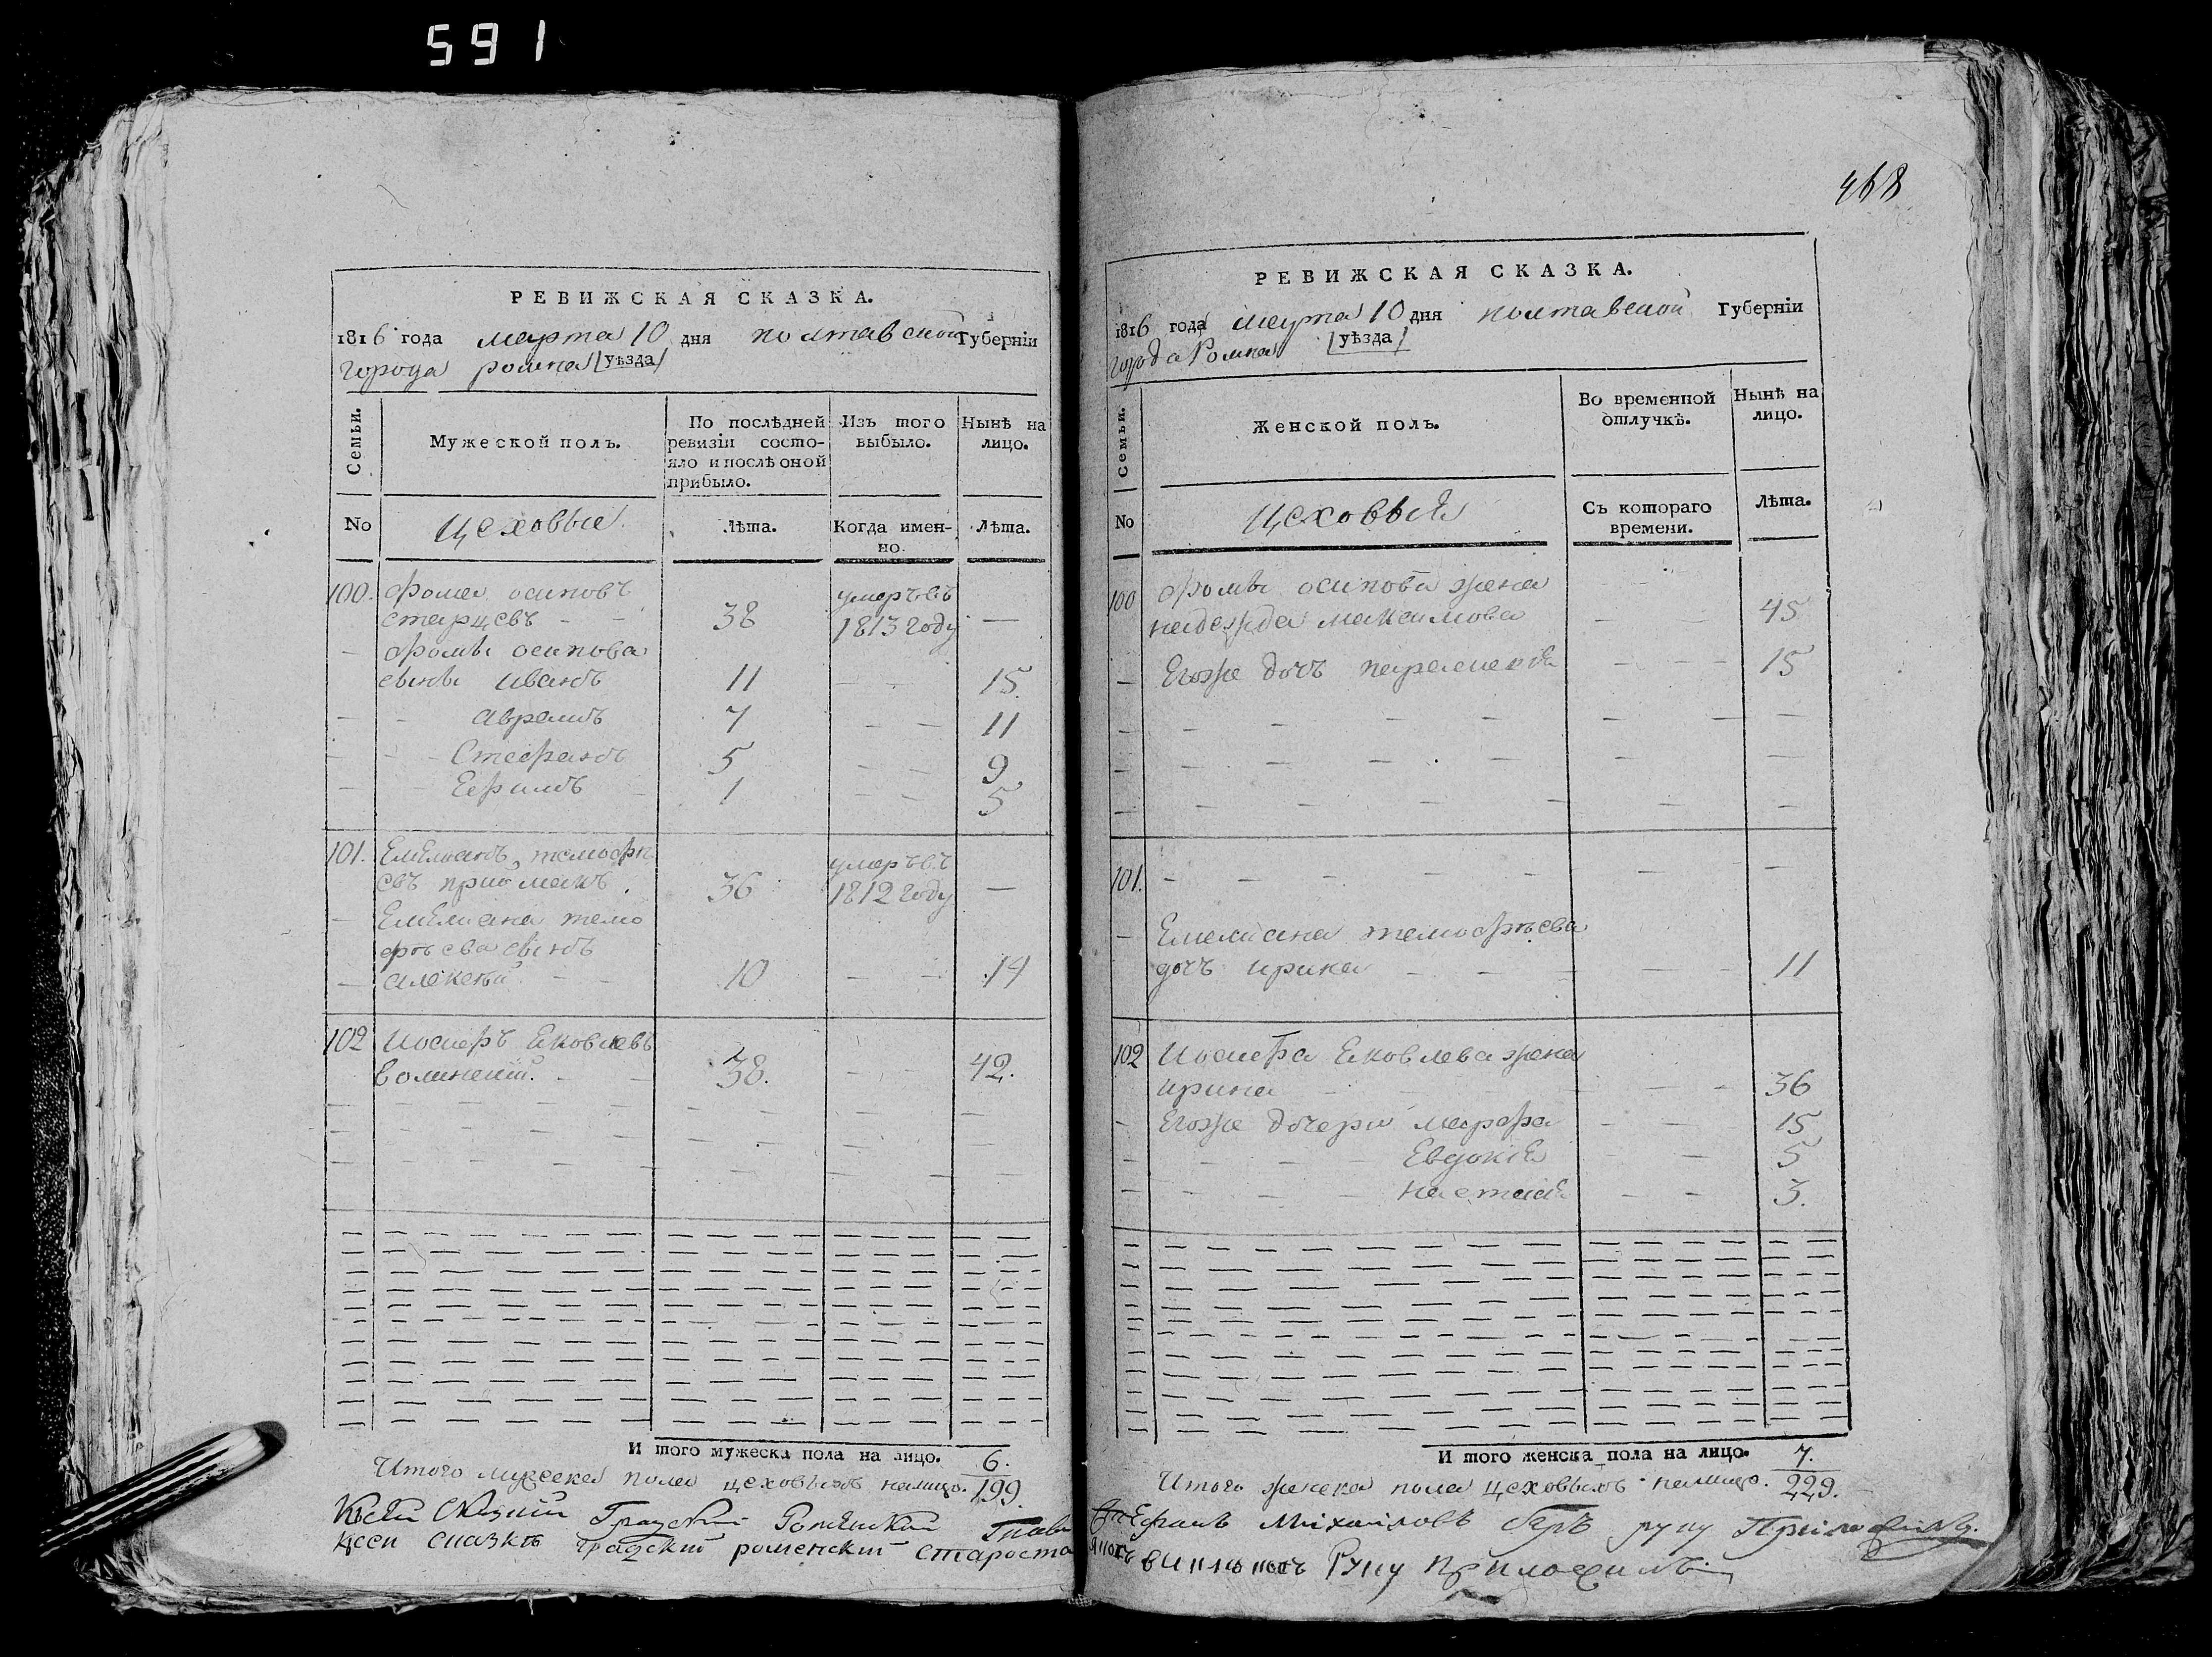 591
РЕВИЖСКАЯ СКАЗКА.
1816 года марта 10 дня полтавской Губернїи
города ромна уѣзда
Семьи.
Мужеской полъ.
По послѣдней ревизїи состояло и послѣ оной прибыло.
Изъ того выбыло.
Нынѣ на лицо.
No
цеховые
Лѣта.
Когда именно.
Лѣта.
100. фома осиповъ
старцевъ 38 умеръ въ 1813 году
фомы осипова
сыны иванъ 11 15
аврамъ 7 11
Стефанъ 5 9
Ефимъ 1 5
101. Емелианъ темофѣ
евъ приймакъ 36 умеръ въ 1812 году
Емелиана темо
фѣева сынъ
алексѣй 10 14
102 Иосифъ Яковлевъ
волинский. 38. 42.
И того мужеска пола на лицо. 6.
Итого мужеска пола цеховыхъ налицо. 199.
468
РЕВИЖСКАЯ СКАЗКА.
1816 года марта 10 дня полтавской Губернїи
города Ромна уѣзда
Семьи.
Женской полъ.
Во временной отлучкѣ.
Нынѣ на лицо.
No
цеховыя
Съ котораго времени.
Лѣта.
100 фомы осипова жена
надежда максимова 45
Егоже дочъ параскевія 15
101.
Емелиана темофѣева
дочъ ирина 11
102 Иосифа Яковлева жена
ирина 36
Егоже дочери марфа 15
Евдокія 5
настасія 3.
И того женска пола на лицо. 7.
Итого женска пола цеховыхъ налицо. 229.
Ксей Сказки Градский Роменский
Ефимъ Михайловъ руку Приложилъ.
Ксей сказкѣ градский роменский староста
руку приложилъ